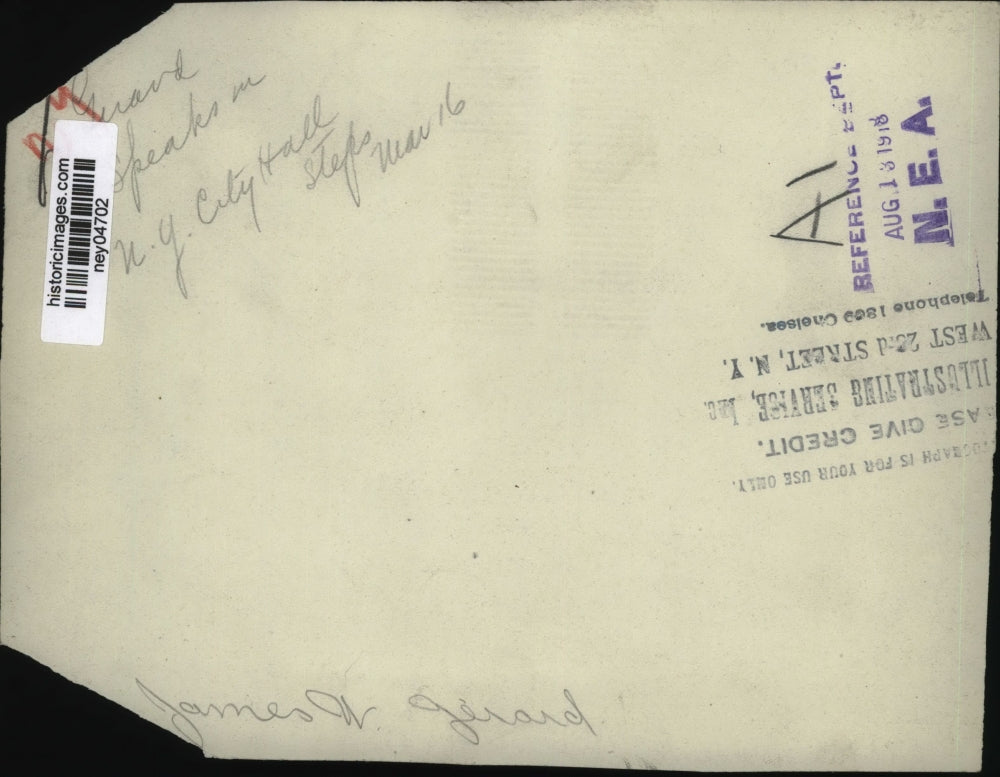 N Y
Gerard
Speaks on
N. Y. City Hall
Steps Mar 16
historicimages.com
ney04702
A1
REFERENCE DEPT.
AUG. 13 1918
N. E. A.
TOGRAPH IS FOR YOUR USE ONLY.
EASE GIVE CREDIT.
ILLUSTRATING SERVICE, Inc.
WEST 23rd STREET, N. Y.
Telephone 1869 Chelsea.
James W Gerard